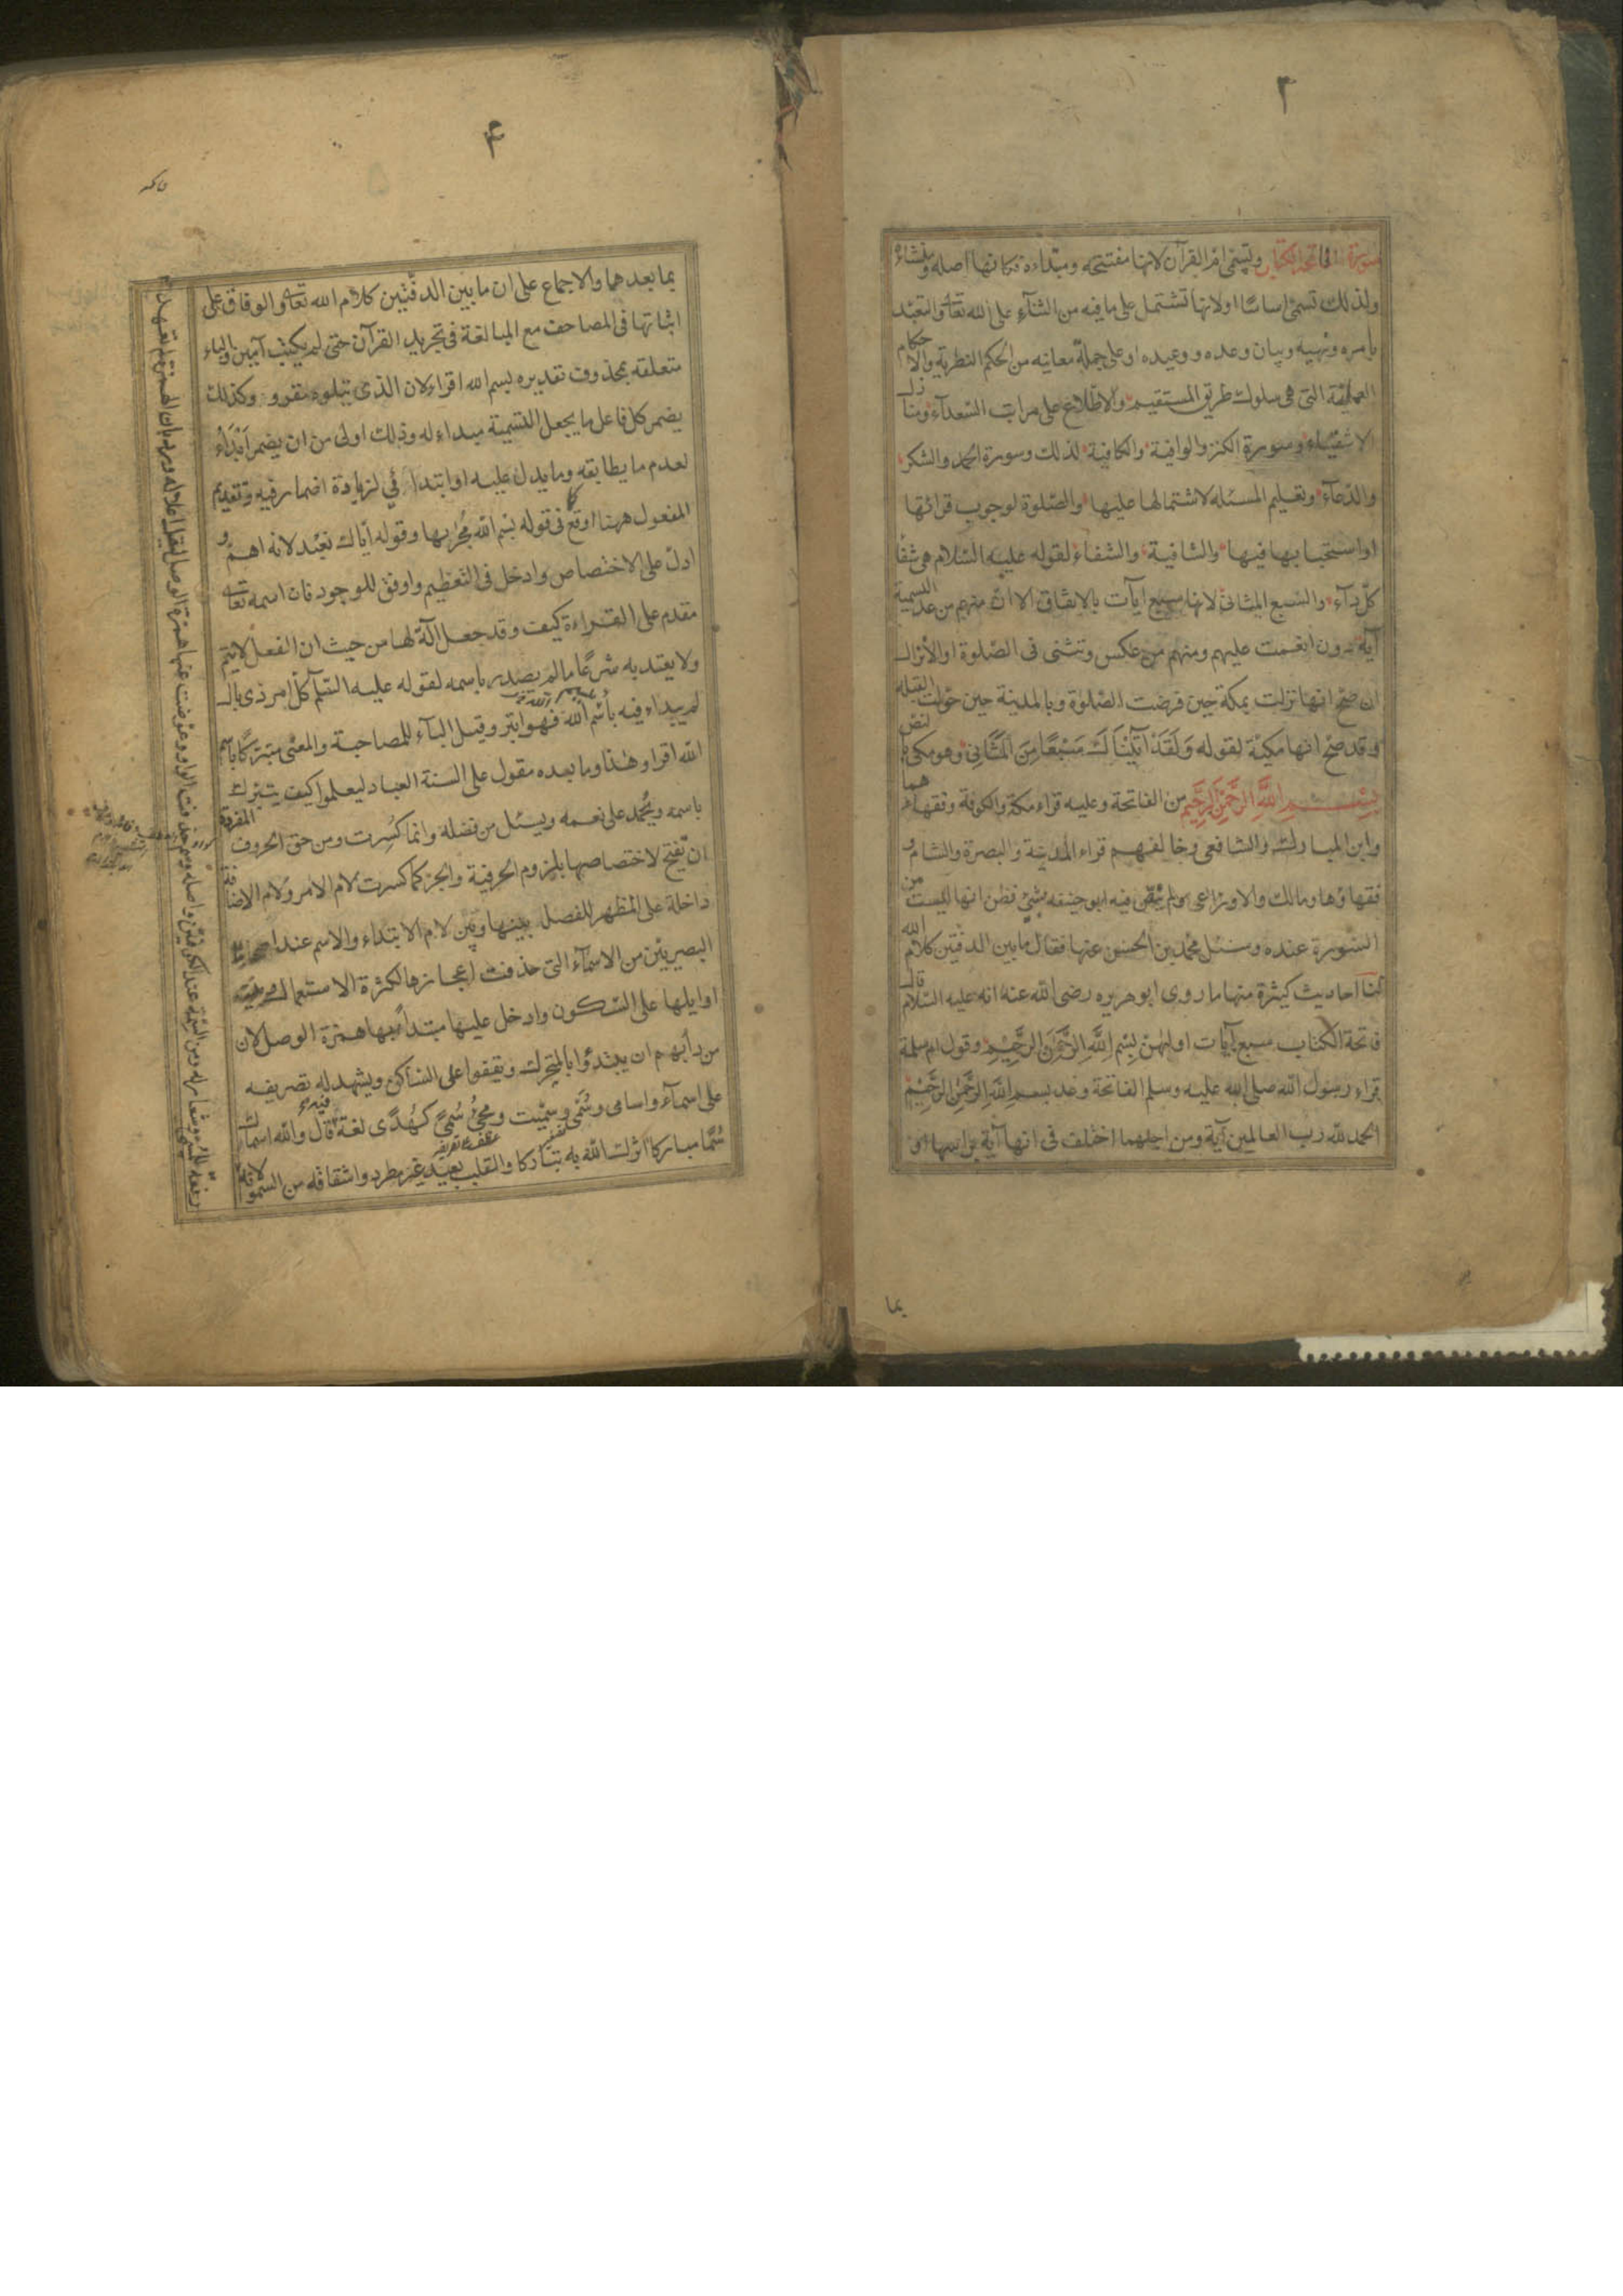 ٣
سورة فاتحة الكتاب وتسمى ام القرآن لانها مفتتحه ومبتداءه فكانها اصله ومنشاءه
ولذلك تسمى اساسًا اولانها تشتمل على ما فيه من الثنآء على الله تعالى والتعبّد
بامره ونهيه وبيان وعده ووعيده او على جملة معانيه من الحكم النظرية والاحكام
العملية التى هى سلوك طريق المستقيم والاطّلاع على مراتب السّعدآء ومنازل
الاشقيآء وسورة الكنز والوافية والكافية لذلك وسورة الحمد والشكر
والدّعآء وتعليم المسئله لاشتمالها عليها والصّلوة لوجوب قرائتها
او استحبابها فيها والشافية والشفاء لقوله عليه السّلام هى شفا
كلّ دآء والسّبع المثانى لانها سبع آيات بالاتفاق الا انّ منهم من عد التسمية
آية دون انعمت عليهم ومنهم من عكس وتثنى فى الصّلوة او الانزال
ان صحّ انها نزلت بمكة حين فرضت الصّلوة وبالمدينة حين حوّلت القبله
وقد صحّ انها مكيّة لقوله وَلَقَدْ آتَيْنَاكَ سَبْعًا مِنَ المَثَانِى وهو مكى بالنص
بِسْمِ اللّٰهِ الرَّحْمٰنِ الرَّحِيمِ من الفاتحة وعليه قراء مكة والكوفة وفقهاءهما
وابن المبارك والشافعى وخالفهم قراء المدينة والبصرة والشام و
فقهاؤها ومالك والاوزاعى ولم ينصّ فيه ابو حنيفه بشئ فظن انها ليست من
السّورة عنده وسئل محمّد بن الحسن عنها فقال ما بين الدفتين كلام الله
لنا احاديث كثيرة منها ما روى ابو هريره رضى الله عنه انه عليه السّلام قال
فاتحة الكتاب سبع آيات اولهنّ بِسْمِ اللَّهِ الرَّحْمٰنِ الرَّحِيْمِ وقول ام سلمة
قراء رسول الله صلى الله عليه وسلم الفاتحة وعد بسم اللّٰه الرَّحْمٰنِ الرَّحِيْمِ
الحمد لله رب العالمين آية ومن اجلهما اختلف فى انها آية براسها او
بما
۴
بما بعدهما والاجماع على ان ما بين الدفّتين كلام الله تعالى والوفاق على
اثباتها فى المصاحف مع المبالغة فى تجريد القرآن حتى لم يكتب آمين والباء
متعلقه بمحذوف تقديره بسم الله اقراء لان الذى يتلوه مقرو وكذلك
يضمر كل فاعل ما يجعل التسمية مبداء له وذلك اولى من ان يضمر ابْدَأُ
لعدم ما يطابقه وما يدل عليه او ابتدائى لزيادة اضمار فيه وتقديم
المفعول ههنا اوقع كما فى قوله بسْم اللّه مَجْرٰيها وقوله ايّاك نعْبد لانه اهم و
ادلّ على الاختصاص وادخل فى التعظيم واوفق للوجود فان اسمه تعالى
مقدم على القراءة كيف وقد جعل آلة لها من حيث ان الفعل لا يتم
ولا يعتد به شرعًا ما لم يصدر باسمه لقوله عليه السّلم كلّ امر ذى بال
لم يبداء فيه باسم الله فهو ابتر وقيل البآء للمصاحبة والمعنى متبركًا باسم
الله اقرا وهٰذا وما بعده مقول على السنة العباد ليعلموا كيف يتبرك
باسمه ويُحْمد على نعمه ويسئل من فضله وانما كُسِرت ومن حق الحروف المفردة
ان تفتح لاختصاصها بلزوم الحرفية والجر كما كسرت لام الامر ولام الاضافة
داخلة على المظهر للفصل بينها وبين لام الابتداء والاسم عند اصحابنا
البصريين من الاسمآء التى حذفت اعجازها لكثرة الاستعمال وبنيت
اوايلها على السّكون وادخل عليها مبتدأ بها همزة الوصل لان
من دأبهم ان يبتدؤا بالمتحرك ويقفوا على السّاكن ويشهد له تصريفه
على اسمآء واسامى وسُمَّى وسمّيت ومجئ سُمىً كهُدًى لغة فيه قال والله اسماك
سُمًا مباركا آثرك الله به تبَارُكا والقلب بعيد غير مطرد واشتقاقه من السموّ لانه
رفعة للمسمّى وشعار له ومن السّمة عند الكوفيين واصله وسم حذفت الواو وعوّضت عنها همزة الوصل ليقل اعلاله ورد بان الهمزة لم تعهد